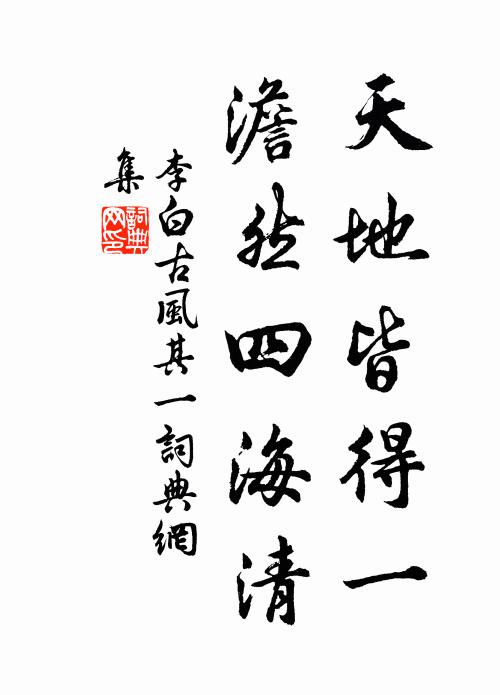 天地皆得一
澹然四海清
李白古風其一詞典網
集
詞典网印